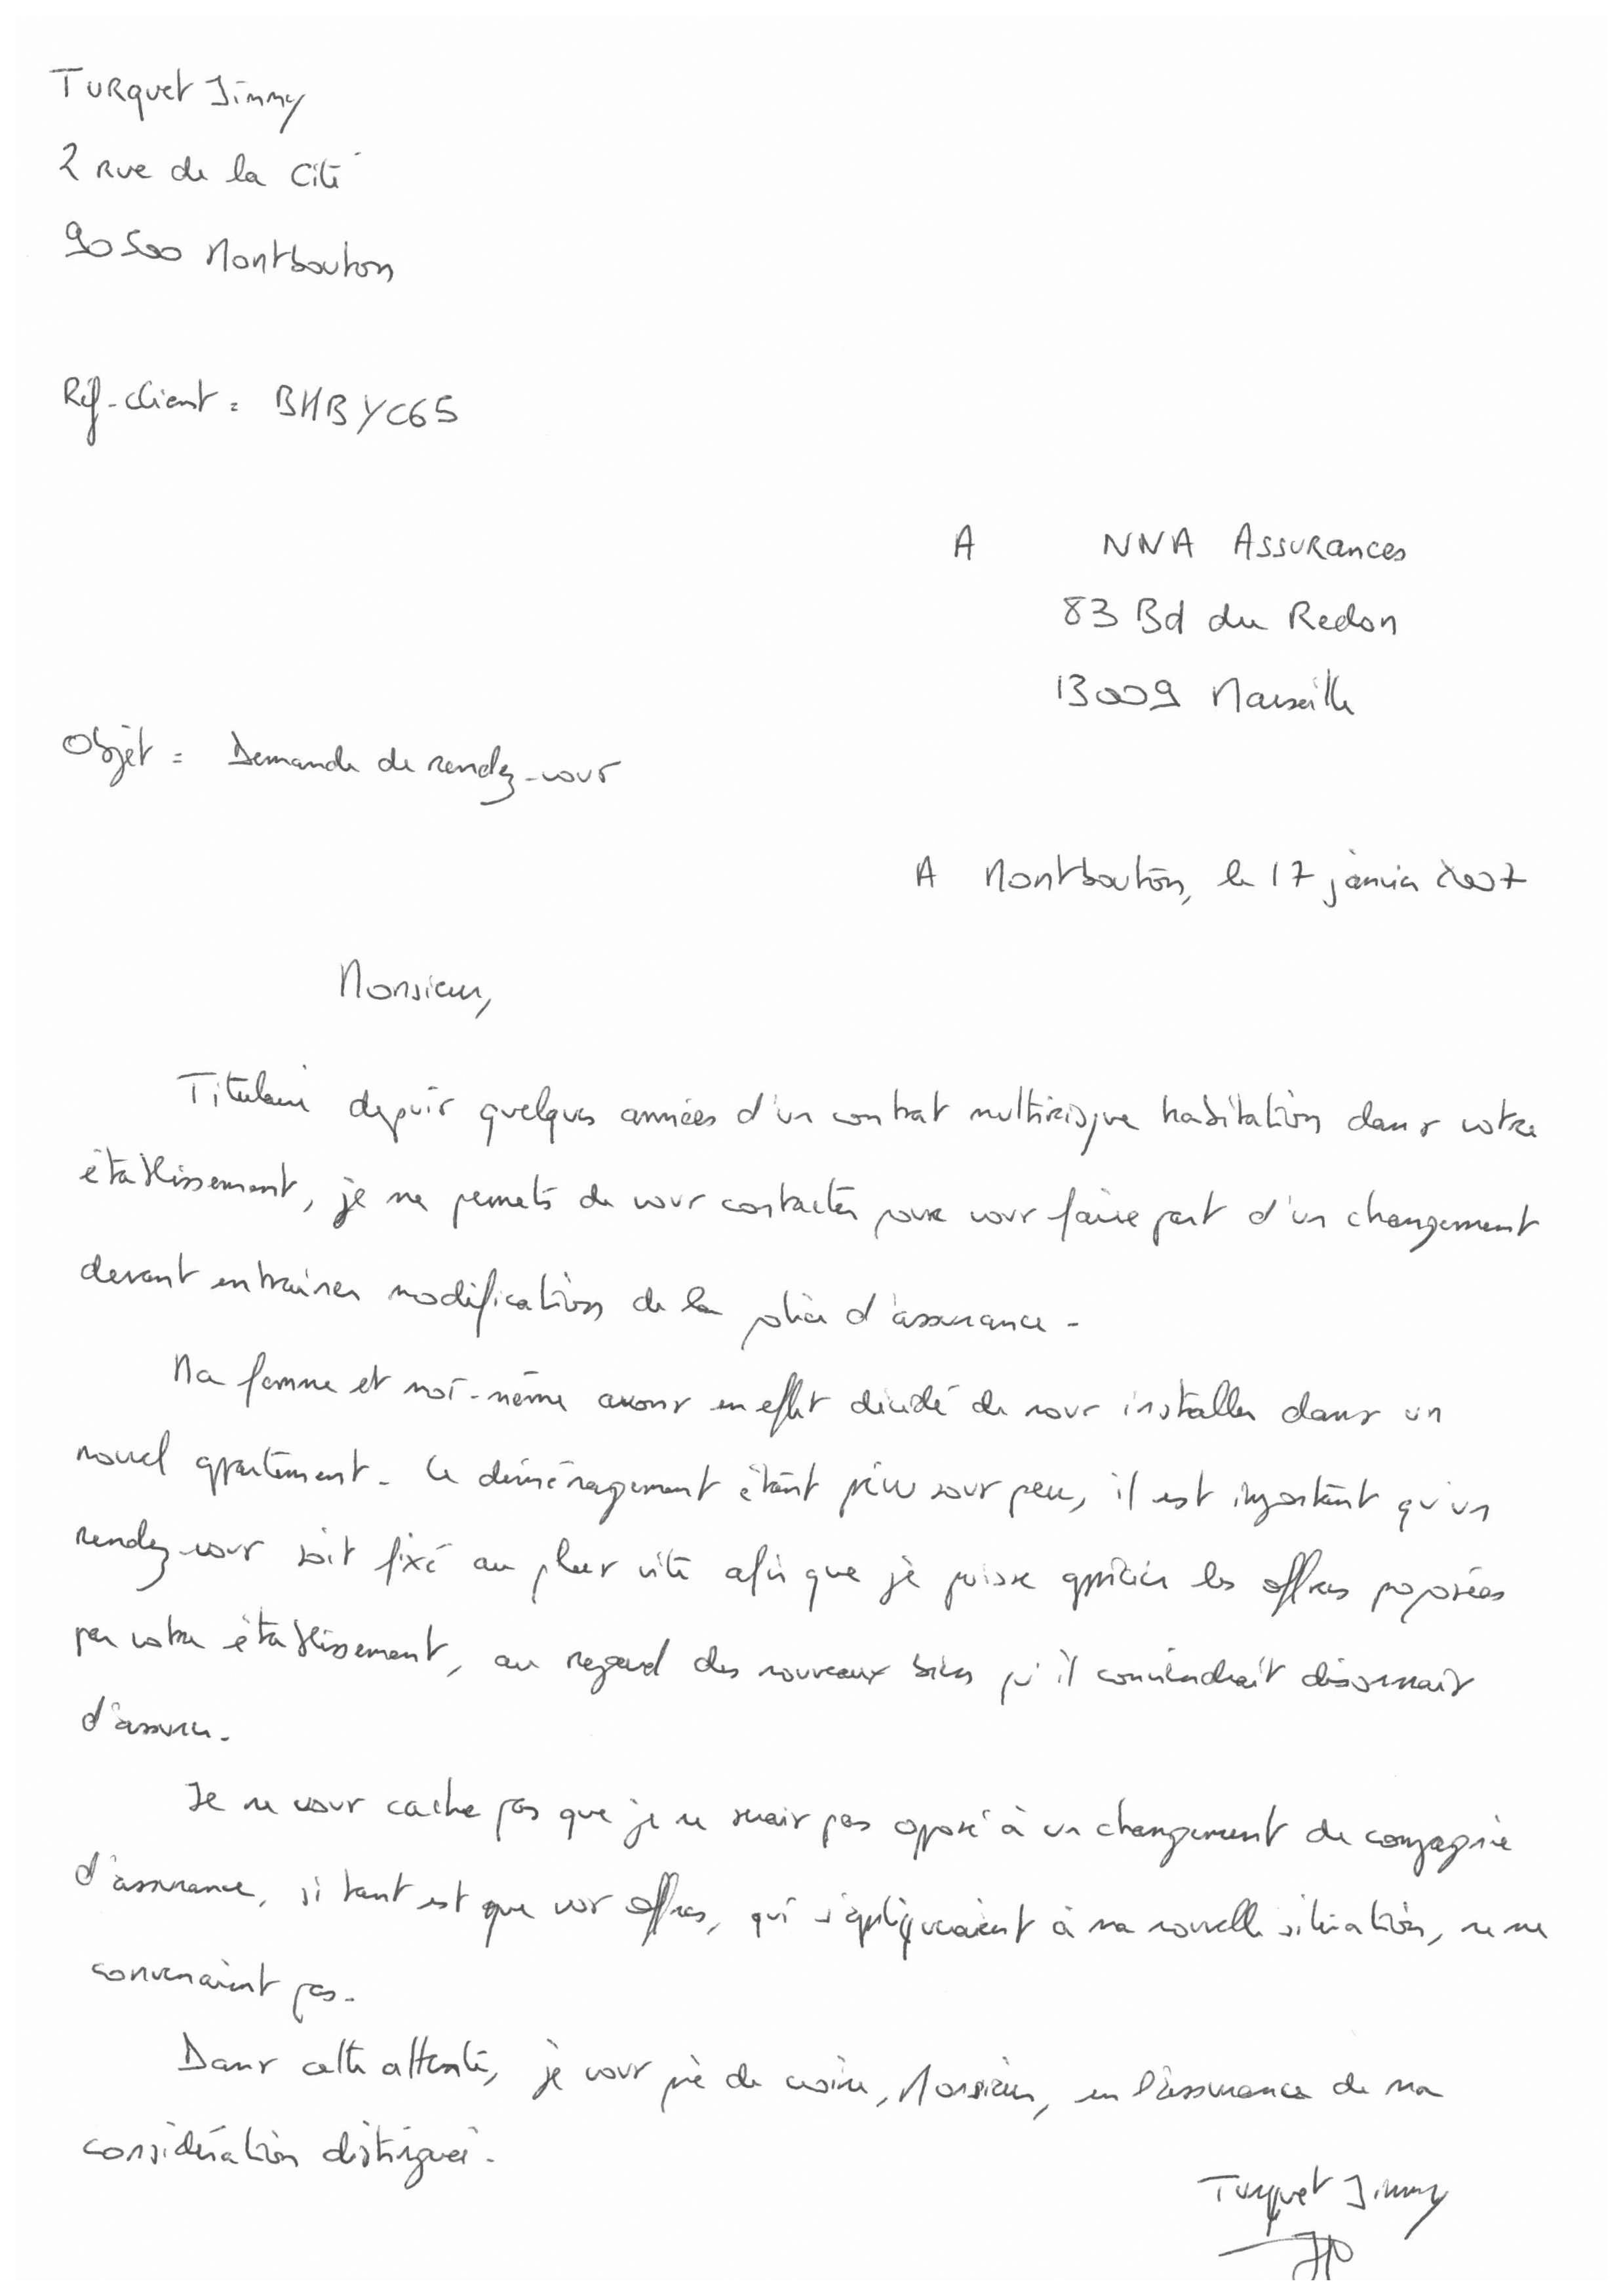 Turquet Jimmy
2 Rue de la Cité
90500 Montbouton
Réf-client : BHBYC65
A NNA Assurances
83 Bd du Redon
13009 Marseille
Objet : Demande de rendez-vous
A Montbouton, le 17 janvier 2007
Monsieur,
Titulaire depuis quelques années d'un contrat multirisque habitation dans votre
établissement, je me permets de vous contacter pour vous faire part d'un changement
devant entrainer modification de la police d'assurance.
Ma femme et moi-même avons en effet décidé de nous installer dans un
nouvel appartement. Ce déménagement étant prévu sous peu, il est important qu'un
rendez-vous soit fixé au plus vite afin que je puisse apprécier les offres proposées
par votre établissement, au regard des nouveaux biens qu'il conviendrait désormais
d'assurer.
Je ne vous cache pas que je ne serais pas opposé à un changement de compagnie
d'assurance, si tant est que vos offres, qui s'appliqueraient à ma nouvelle situation, ne me
convenaient pas.
Dans cette attente, je vous prie de croire, Monsieur, en l'assurance de ma
considération distinguée.
Turquet Jimmy